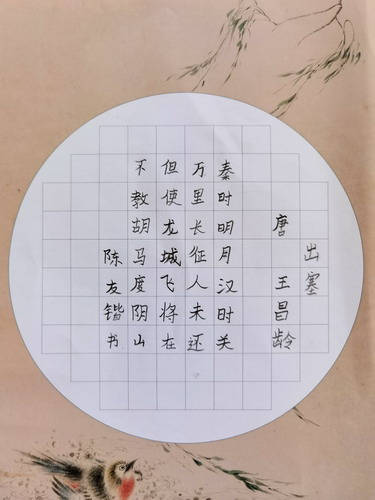 出塞
唐 王昌龄
秦时明月汉时关
万里长征人未还
但使龙城飞将在
不教胡马度阴山
陈友锴书